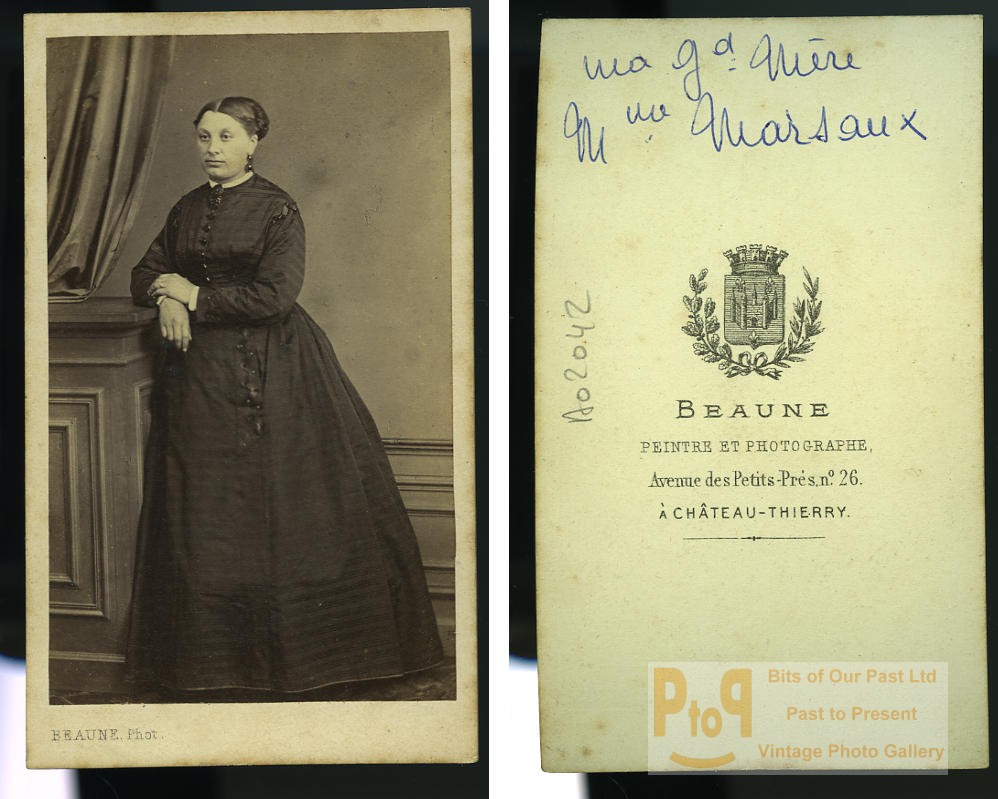 BEAUNE, Phot.
ma gd. Mère
Mme. Marsaux
A02042
BEAUNE
PEINTRE ET PHOTOGRAPHE,
Avenue des Petits-Prés, no. 26.
À CHÂTEAU-THIERRY.
PtoP
Bits of Our Past Ltd
Past to Present
Vintage Photo Gallery